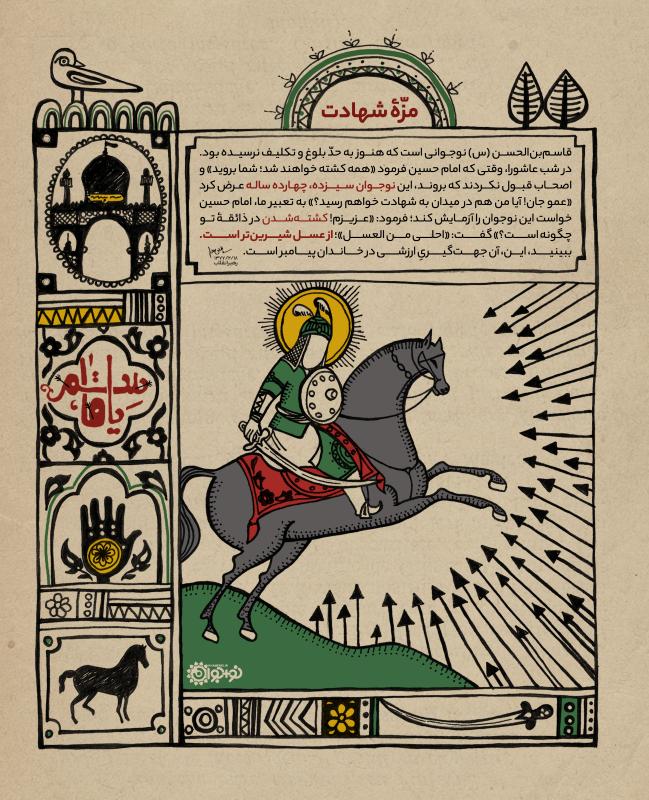 مزّهٔ شهادت
قاسم‌بن‌الحسن (س) نوجوانی است که هنوز به حدّ بلوغ و تکلیف نرسیده بود.
در شب عاشورا، وقتی که امام حسین فرمود «همه کشته خواهند شد؛ شما بروید» و
اصحاب قبول نکردند که بروند، این نوجوان سیزده، چهارده ساله عرض کرد
«عمو جان! آیا من هم در میدان به شهادت خواهم رسید؟» به تعبیر ما، امام حسین
خواست این نوجوان را آزمایش کند؛ فرمود: «عزیزم! کشته‌شدن در ذائقهٔ تو
چگونه است؟» گفت: «احلی من العسل»؛ از عسل شیرین‌تر است.
ببینید، این، آن جهت‌گیریِ ارزشی در خاندان پیامبر است.
۱۳۷۷/۲/۱۸
رهبر انقلاب
یا قاسم
نوجوان